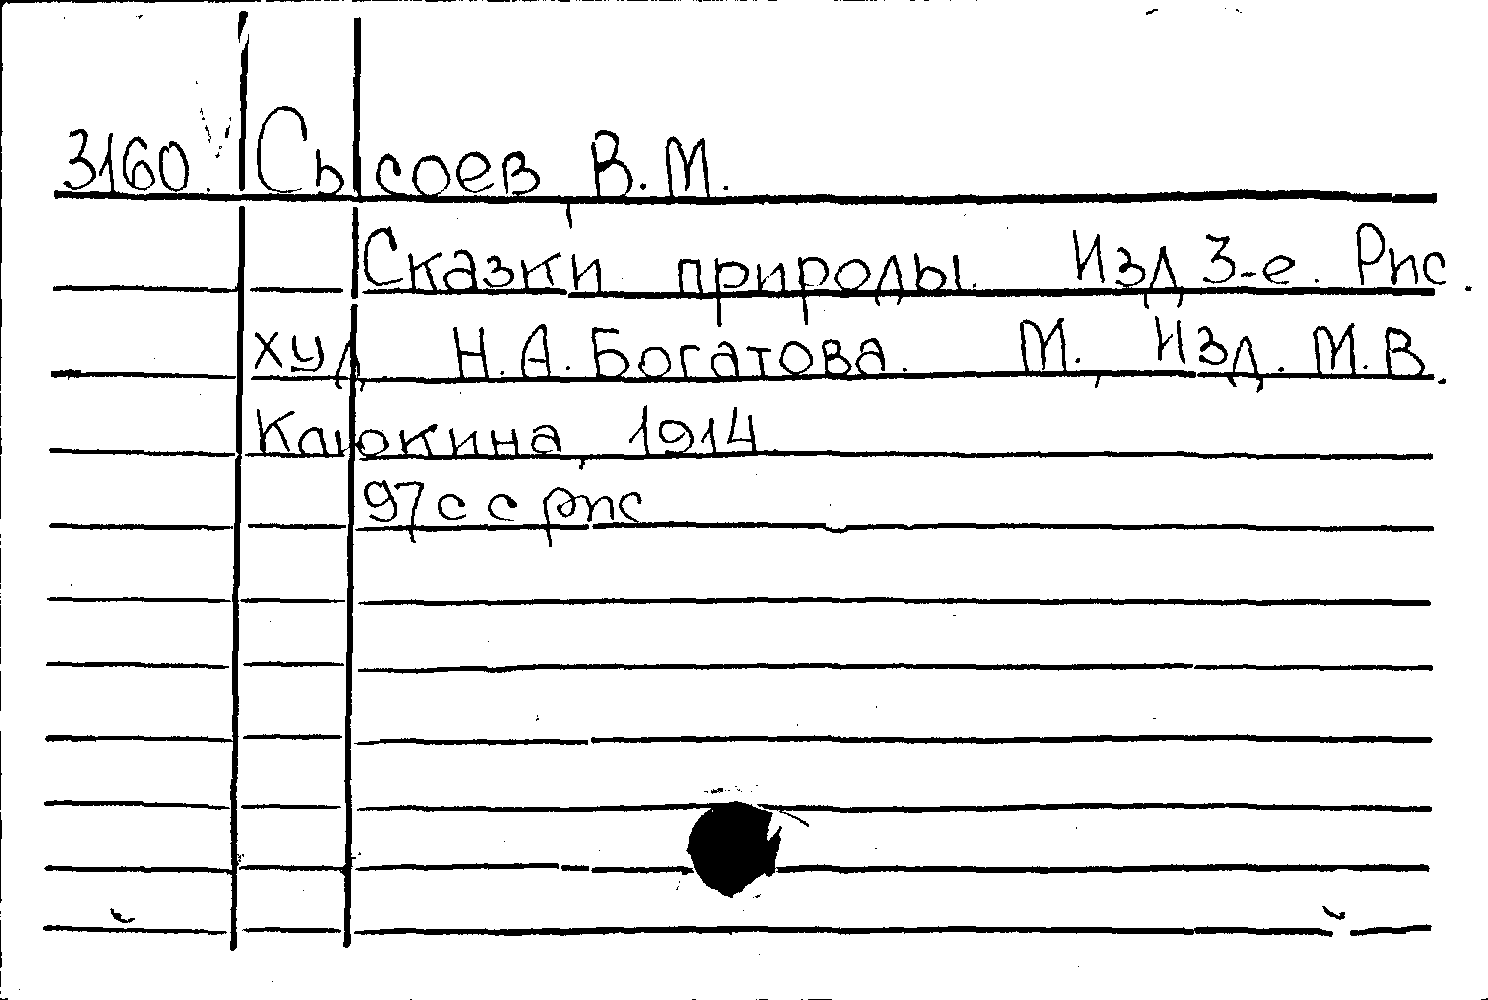 3160 Сысоев В.М.
Сказки природы. Изд 3-е. Рис.
худ Н.А. Богатова. М., Изд. М.В.
Клюкина, 1914
97с с рис